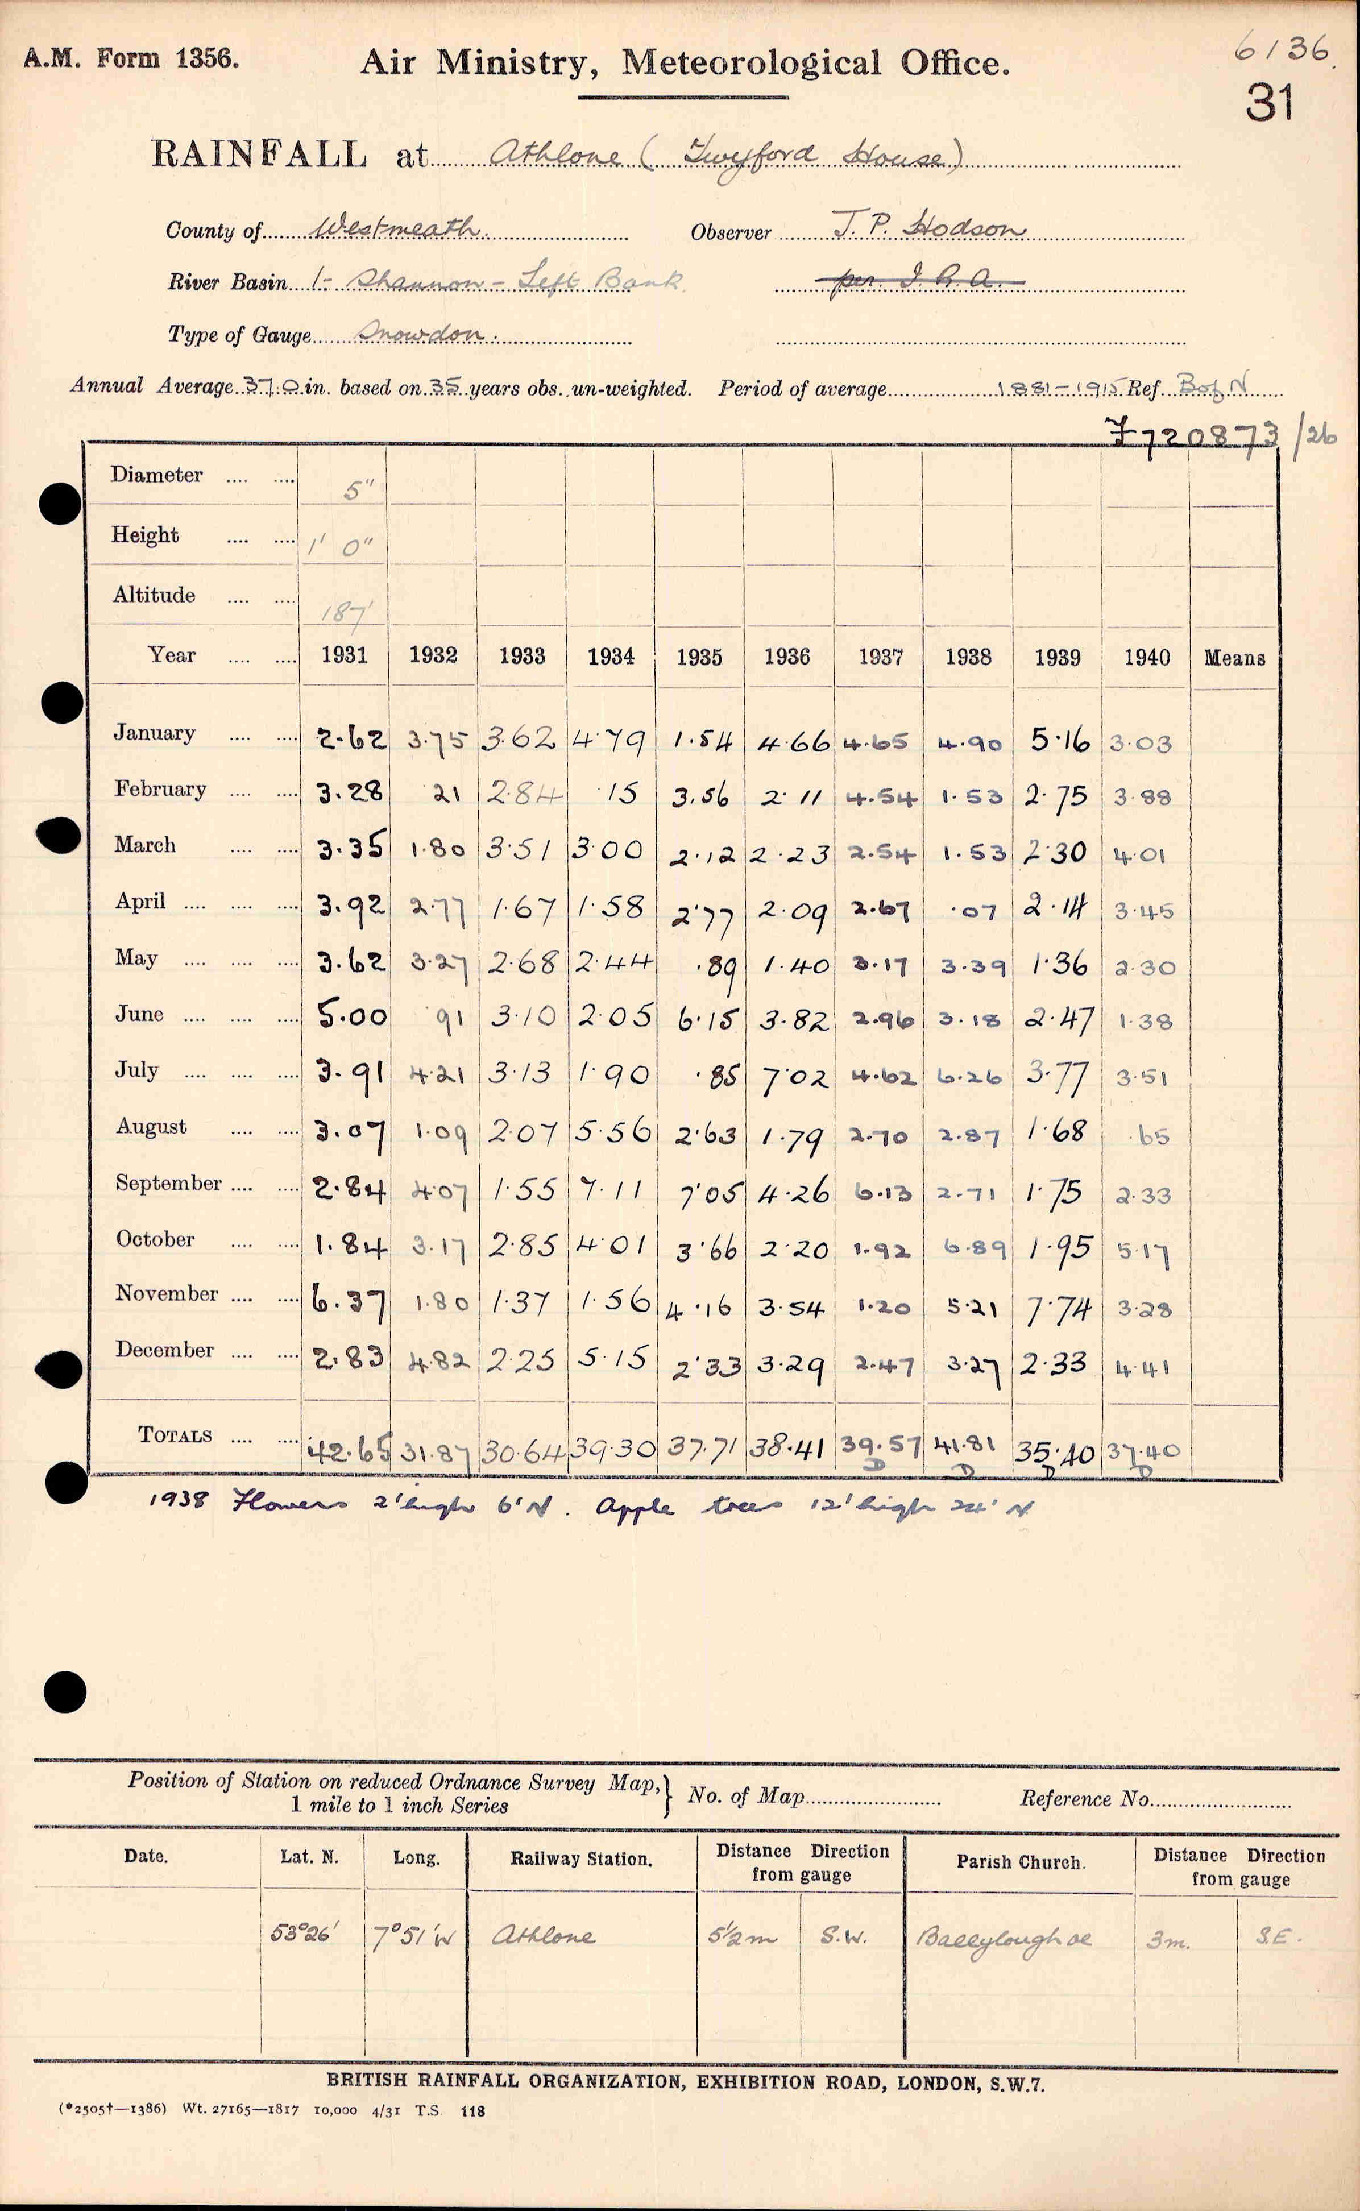 A.M. Form 1356. Air Ministry, Meteorological Office. 6136.
31
RAINFALL at Athlone (Twyford House)
County of Westmeath. Observer J. P. Hodson
River Basin 1- Shannon - Left Bank. per I.R.A.
Type of Gauge Snowdon.
Annual Average 37.0 in. based on 35 years obs. un-weighted. Period of average 1881-1915 Ref. B of N
7720873/26
Diameter .... .... 5"
Height .... .... 1' 0"
Altitude .... .... 187'
Year .... .... 1931 1932 1933 1934 1935 1936 1937 1938 1939 1940 Means
January .... .... 2.62 3.75 3.62 4.79 1.54 4.66 4.65 4.90 5.16 3.03
February .... .... 3.28 21 2.84 .15 3.56 2.11 4.54 1.53 2.75 3.88
March .... .... 3.35 1.80 3.51 3.00 2.12 2.23 2.54 1.53 2.30 4.01
April .... .... .... 3.92 2.77 1.67 1.58 2.77 2.09 2.67 .07 2.14 3.45
May .... .... .... 3.62 3.27 2.68 2.44 .89 1.40 3.17 3.39 1.36 2.30
June .... .... .... 5.00 91 3.10 2.05 6.15 3.82 2.96 3.18 2.47 1.38
July .... .... .... 3.91 4.21 3.13 1.90 .85 7.02 4.62 6.26 3.77 3.51
August .... .... 3.07 1.09 2.07 5.56 2.63 1.79 2.70 2.87 1.68 .65
September .... .... 2.84 4.07 1.55 7.11 7.05 4.26 6.13 2.71 1.75 2.33
October .... .... 1.84 3.17 2.85 4.01 3.66 2.20 1.92 6.89 1.95 5.17
November .... .... 6.37 1.80 1.37 1.56 4.16 3.54 1.20 5.21 7.74 3.28
December .... .... 2.83 4.82 2.25 5.15 2.33 3.29 2.47 3.27 2.33 4.41
TOTALS .... .... 42.65 31.87 30.64 39.30 37.71 38.41 39.57 41.81 35.40 37.40
D D D D
1938 Flowers 2' high 6' N. Apple trees 12' high 24' N
Position of Station on reduced Ordnance Survey Map, } No. of Map Reference No.
1 mile to 1 inch Series
Date. Lat. N. Long. Railway Station. Distance Direction from gauge Parish Church. Distance Direction from gauge
53°26' 7°51'W Athlone 5½m S.W. Ballyloughloe 3m. S.E.
BRITISH RAINFALL ORGANIZATION, EXHIBITION ROAD, LONDON, S.W.7.
(*2505†—1386) Wt. 27165—1817 10,000 4/31 T.S. 118